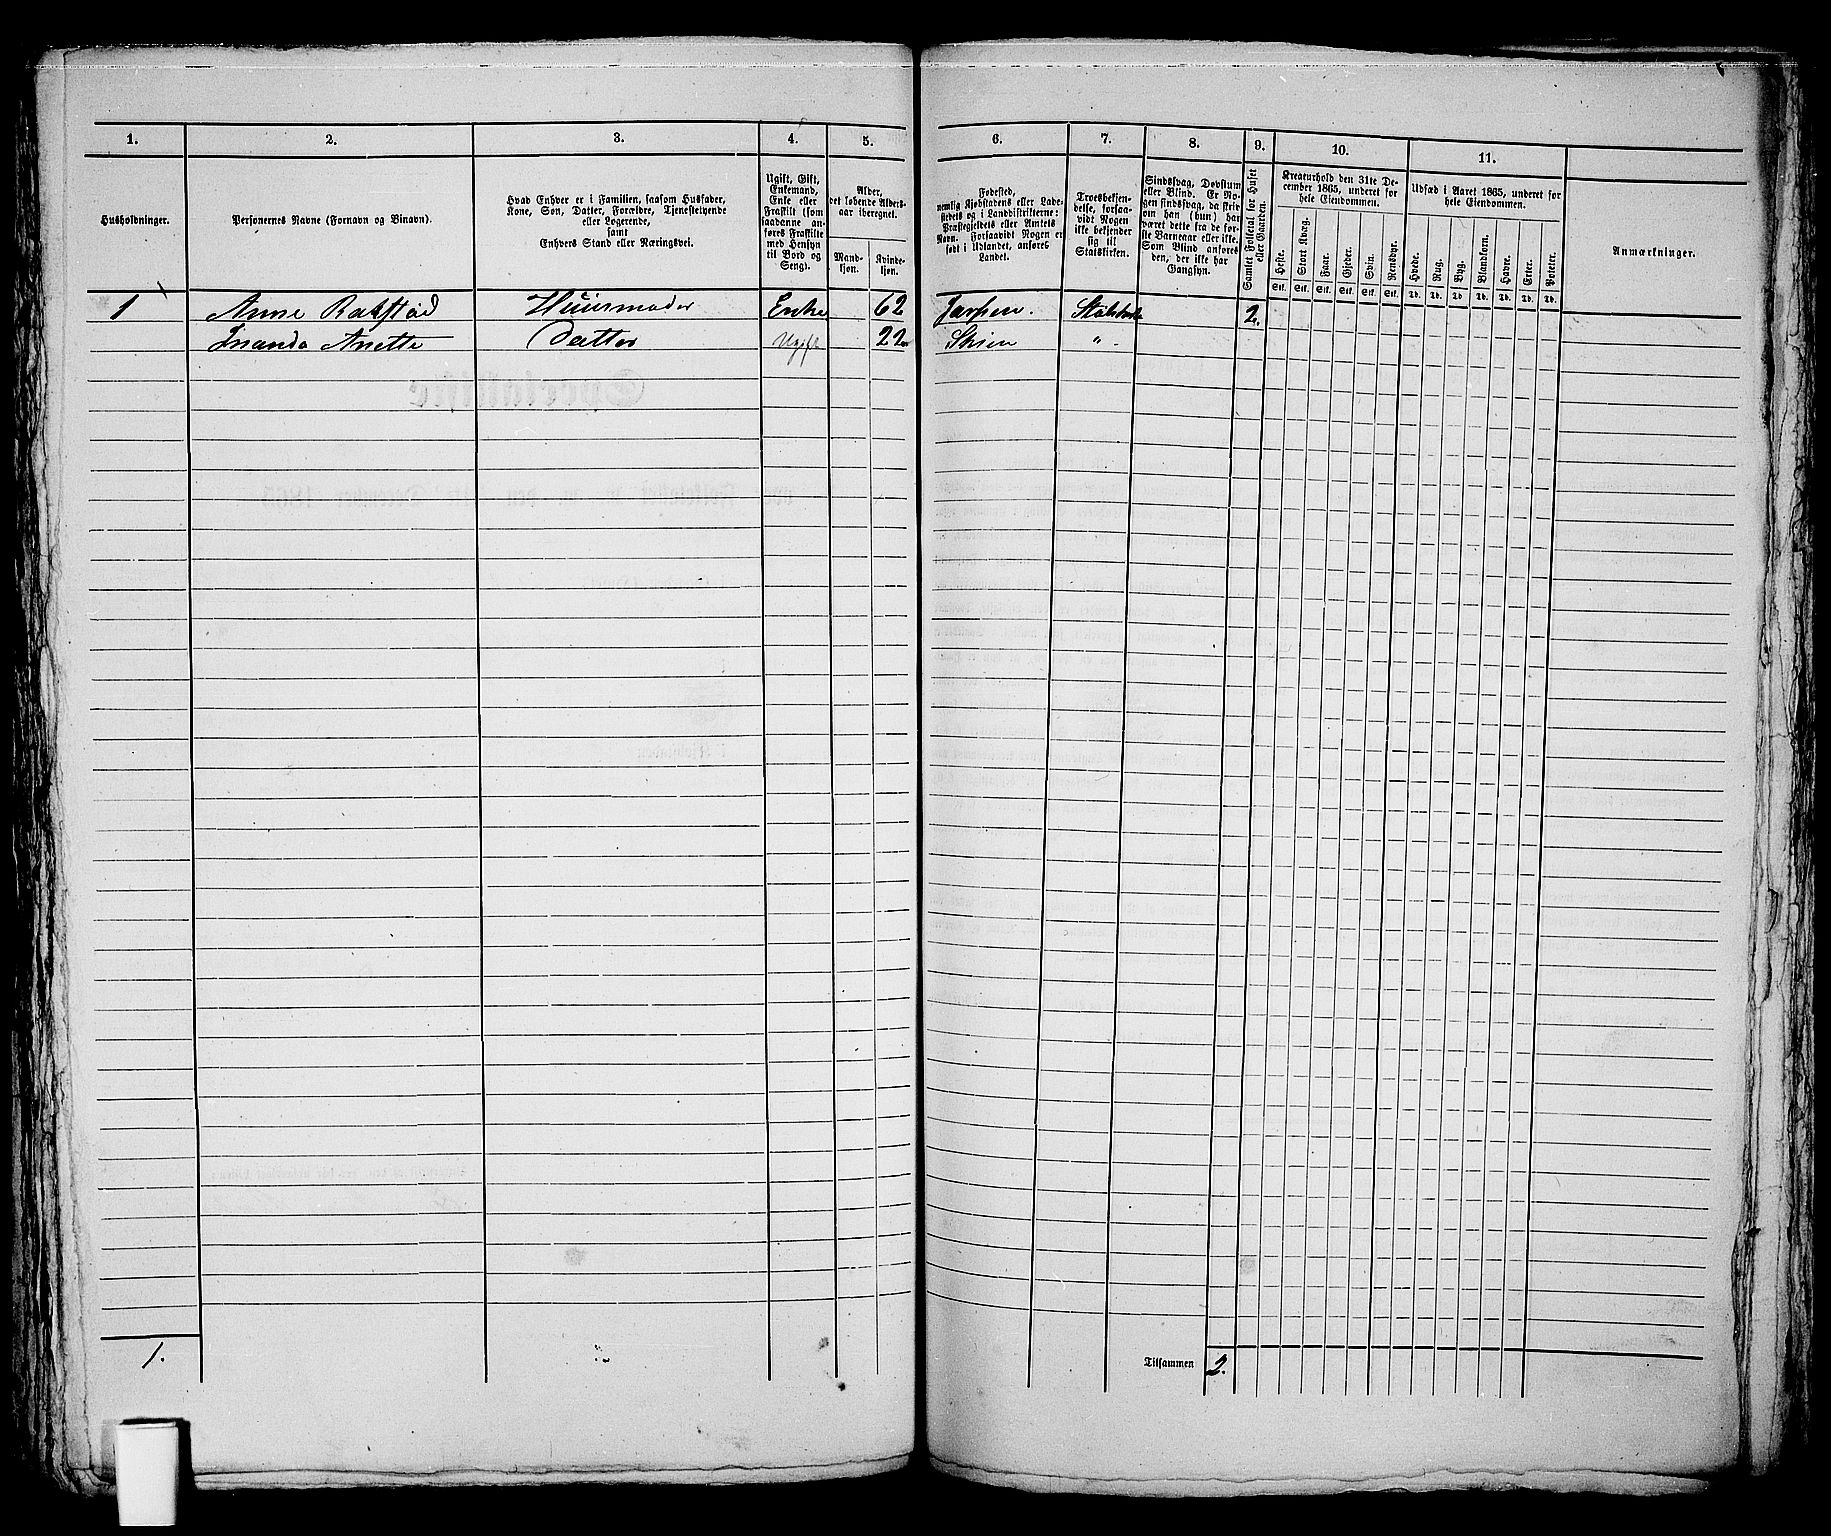 1. 2. 3. 4. 5. 6. 7. 8. 9. 10. 11.
Husholdninger.
Personernes Navne (Fornavn og Binavn).
Hvad Enhver er i Familien, saasom Husfader,
Kone, Søn, Datter, Forældre, Tjenestetyende
eller Logerende,
samt
Enhvers Stand eller Næringsvei.
Ugift, Gift,
Enkemand,
Enke eller
Fraskilt (som
saadanne an-
føres Fraskilte
med Hensyn
til Bord og
Seng).
Alder,
det løbende Alders-
aar iberegnet.
Mand-
kjøn.
Kvinde-
kjøn.
Fødested,
nemlig Kjøbstadens eller Lade-
stedets og i Landdistrikterne:
Præstegjeldets eller Amtets
Navn. Forsaavidt Nogen er
født i Udlandet, anføres
Landet.
Troesbekjen-
delse, forsaa-
vidt Nogen
ikke bekjender
sig til
Statskirken.
Sindssvag, Døvstum
eller Blind. Er No-
gen sindssvag, da skriv
om han (hun) har
været dette fra de før-
ste Barneaar eller ikke.
Som Blind anføres
den, der ikke har
Gangsyn.
Samlet Folketal for Huset
eller Gaarden.
Kreaturhold den 31te De-
cember 1865, underet for
hele Eiendommen.
Heste. Stort Kvæg. Faar. Gjeder. Svin. Rensdyr.
Stk. Stk. Stk. Stk. Stk. Stk.
Udsæd i Aaret 1865, underet for
hele Eiendommen.
Hvede. Rug. Byg. Blandkorn. Havre. Erter. Poteter.
Td. Td. Td. Td. Td. Td. Td.
Anmærkninger.
1 Anne Huusmoder Enke 62 2.
Anette Datter Ugift 22 Skien "
1. Tilsammen 2.